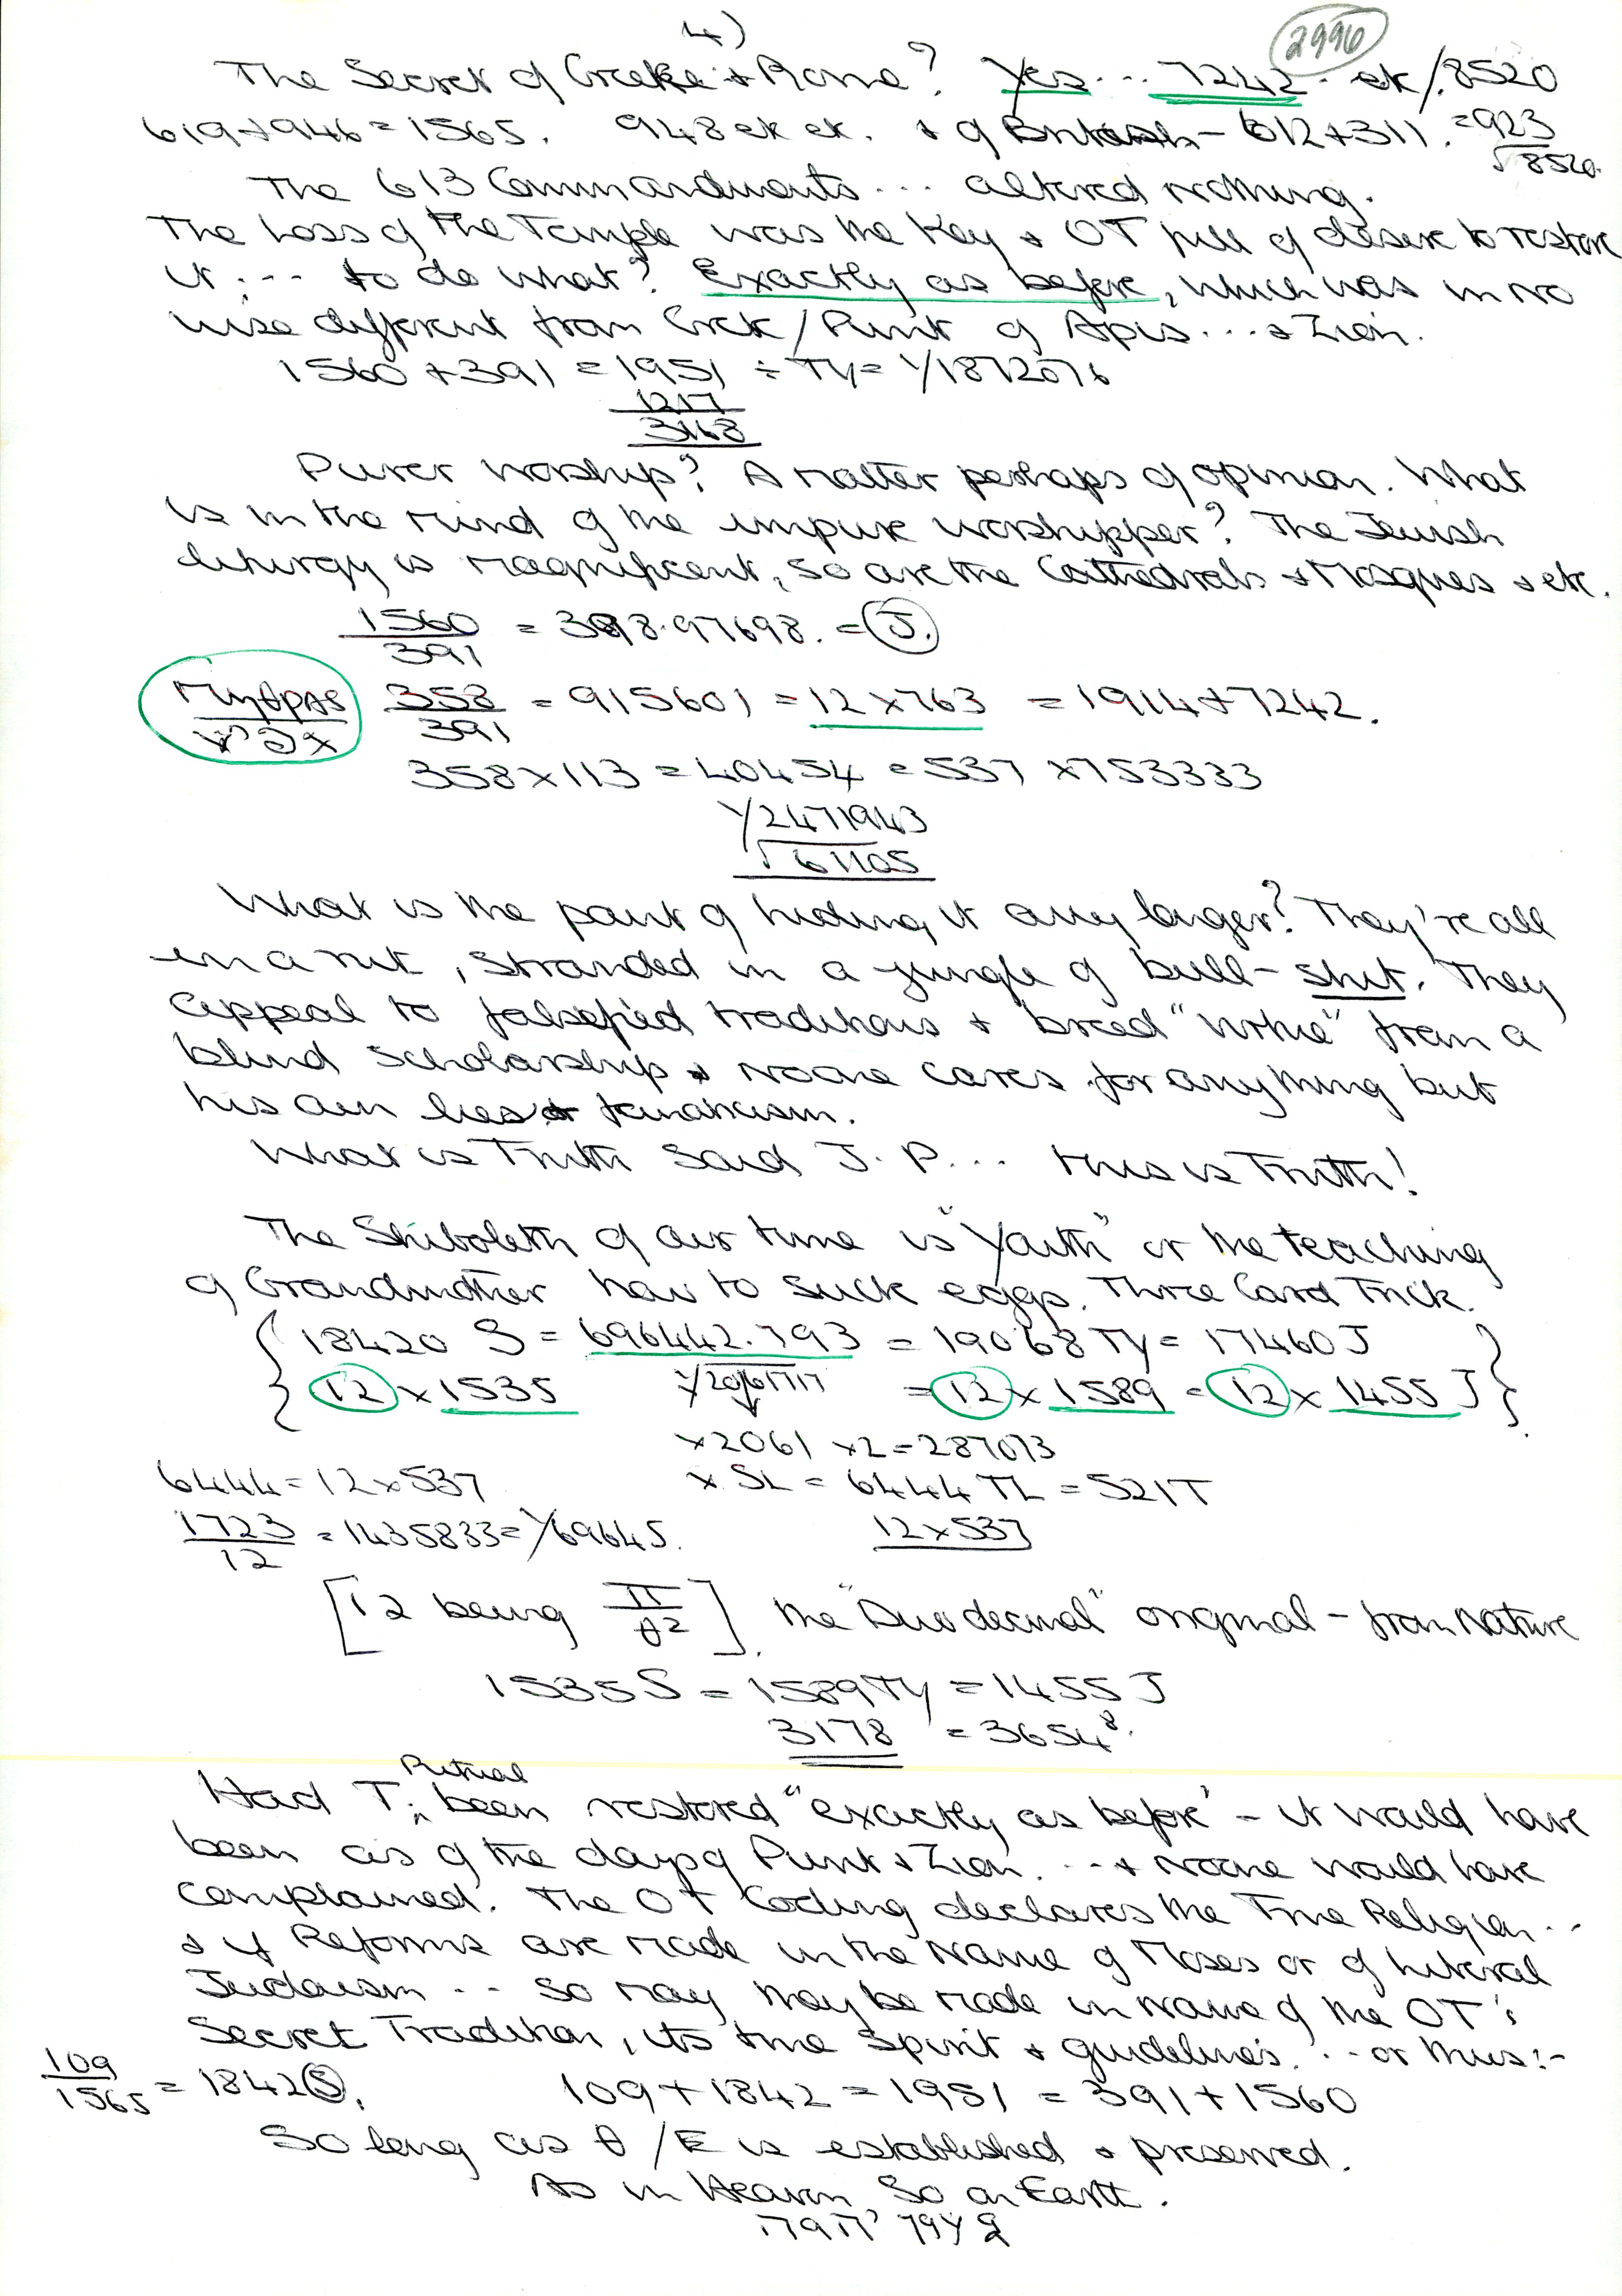 4)
2996
The Secret of Greeke & Rome? Yes... 7242. etc/.8520
619+946=1565. 948 etc etc. & of British - 612+311. =923
√8520.
The 613 Commandments... altered nothing.
The Loss of the Temple was the Key & OT full of desire to restore
it... to do what? Exactly as before, which was in no
wise different from Crete/Punt of Apis... & Zion.
1560+391=1951 ÷ TY= Y1872076
1217
3168
Purer worship? A matter perhaps of opinion. What
is in the mind of the impure worshipper? The Jewish
liturgy is magnificent, so are the Cathedrals & Mosques & etc.
1560/391 = 398.97698. = J.
358/391 = 915601 = 12 x 763 = 1914+7242.
358x113=40454=537 x753333
Y2471943
√61105
What is the point of hiding it any longer? They're all
in a rut, stranded in a jungle of bull-shit. They
appeal to falsefied traditions & breed "virtue" from a
blind scholarship & noone cares for anything but
his own lies & fanaticism.
What is Truth said J. P... this is Truth!
The Shiboleth of our time is "Youth" or the teaching
of Grandmother how to suck eggs. Three Card Trick.
{18420 S = 696442.793 = 19068 TY = 17460 J
12 x 1535 Y2061717 = 12 x 1589 = 12 x 1455 J}
x2061 x2=287073
6444=12x537 x SL = 6444 TL = 521T
1723/12 = 1435833= Y69645. 12x537
[12 being π/θ²]. The "Duodecimal" original - from Nature
1535 S = 1589 TY = 1455 J
3178 = 3654⁸.
Ritual
Had T. been restored "exactly as before" - it would have
been as of the days of Punt & Zion... & noone would have
complained. The OT Coding declares the True Religion...
& if Reforms are made in the Name of Moses or of Liberal
Judaism... so may they be made in name of the OT's
Secret Tradition, its true spirit & guidelines... or thus:-
109/1565 = 1842 S. 109+1842=1951=391+1560
So long as θ/E is established & preserved.
As in Heaven, So on Earth.